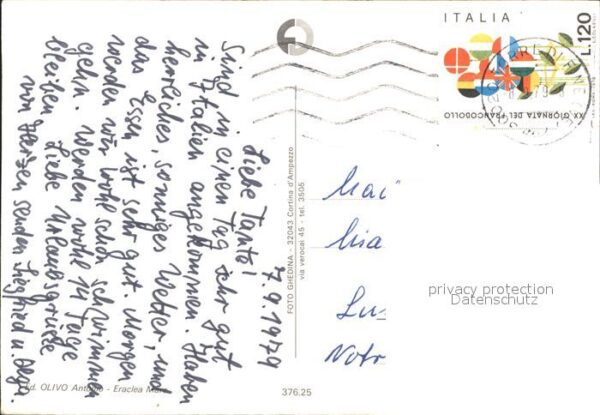 7.9.1979
Liebe Tante!
Sind in einen Tag sehr gut
in Italien angekommen. Haben
herrliches, sonniges Wetter, und
das Essen ist sehr gut. Morgen
werden wir wohl schon schwimmen
gehn. Werden wohl 14 Tage
bleiben. Liebe Urlaubsgrüße
von Herzen senden Siegfried u. Olga.
Ed. OLIVO Antonio - Eraclea Mare
FOTO GHEDINA - 32043 Cortina d'Ampezzo
via verocai 45 - tel. 3505
376.25
ITALIA
L.120
XX GIORNATA DEL FRANCOBOLLO
Mai
Mia
Lu
Notr
privacy protection
Datenschutz